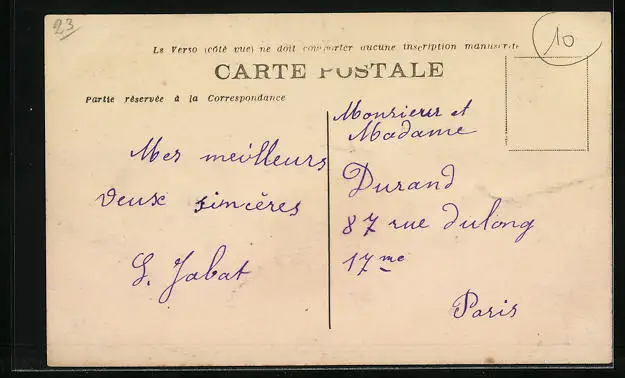 23
10
Le Verso (côté vue) ne doit comporter aucune inscription manuscrite
CARTE POSTALE
Partie réservée à la Correspondance
Mes meilleurs
veux simcères
S. Jabat
Monsieur et
Madame
Durand
87 rue dulong
17me
Paris